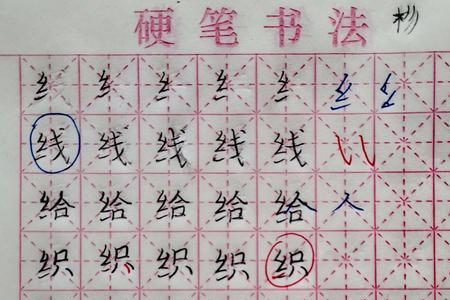 硬笔书法
纟 纟 纟 纟 纟 纟
线 线 线 线 线
给 给 给 给 给 人
织 织 织 织 织